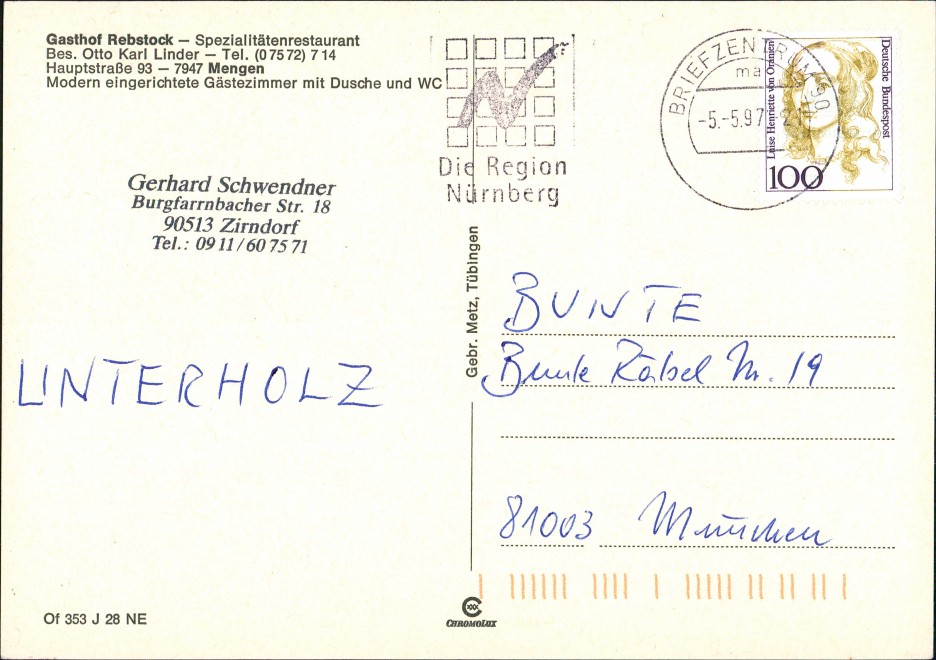 Gasthof Rebstock – Spezialitätenrestaurant
Bes. Otto Karl Linder – Tel. (07572) 714
Hauptstraße 93 – 7947 Mengen
Modern eingerichtete Gästezimmer mit Dusche und WC
Gerhard Schwendner
Burgfarrnbacher Str. 18
90513 Zirndorf
Tel.: 09 11/60 75 71
UNTERHOLZ
Of 353 J 28 NE
Die Region
Nürnberg
BRIEFZENTRUM 90
-5.-5.97
Luise Henriette von Oranien
Deutsche Bundespost
100
Gebr. Metz, Tübingen
BUNTE
Bunte Rätsel Nr. 19
81003 München
CHROMOLUX